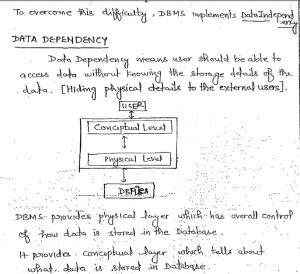 To overcome this difficulty, DBMS implements Data Independ
ency
DATA DEPENDENCY
Data Dependency means user should be able to
access data without knowing the storage details of the
data. [Hiding physical details to the external users].
USER
Conceptual Level
Physical Level
DBFiles
DBMS provides physical layer which has overall control
of how data is stored in the Database.
It provides conceptual layer which tells about
what data is stored in Database.